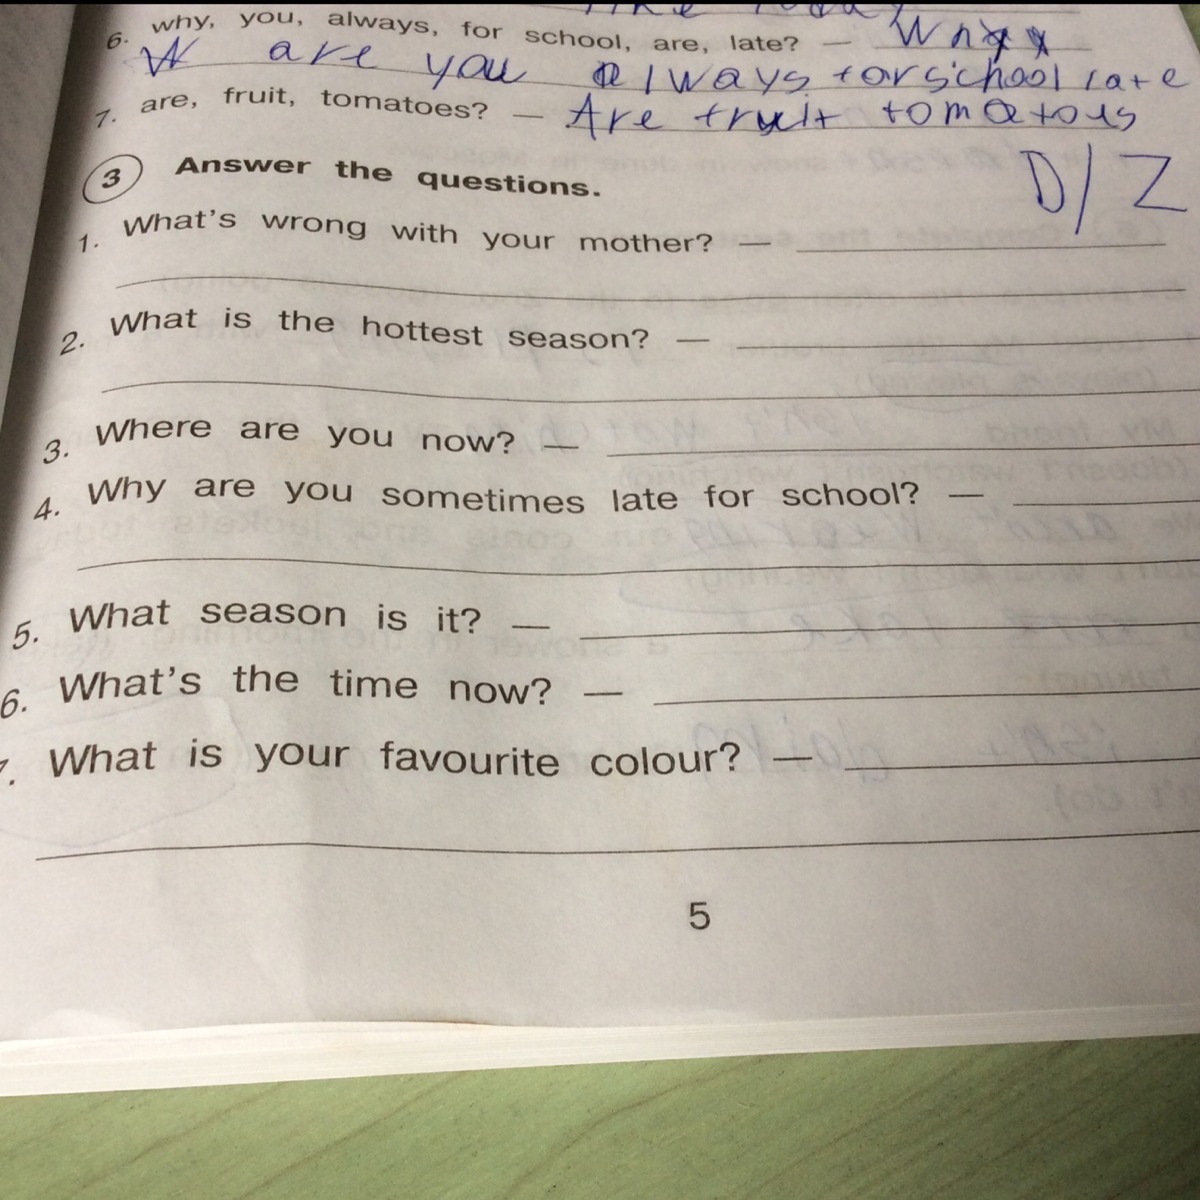 6. why, you, always, for school, are, late? —
are you always for school late
7. are, fruit, tomatoes? — Are fruit tomatous
3 Answer the questions.
D/Z
1. What's wrong with your mother? —
2. What is the hottest season? —
3. Where are you now? —
4. Why are you sometimes late for school? —
5. What season is it? —
6. What's the time now? —
7. What is your favourite colour? —
5